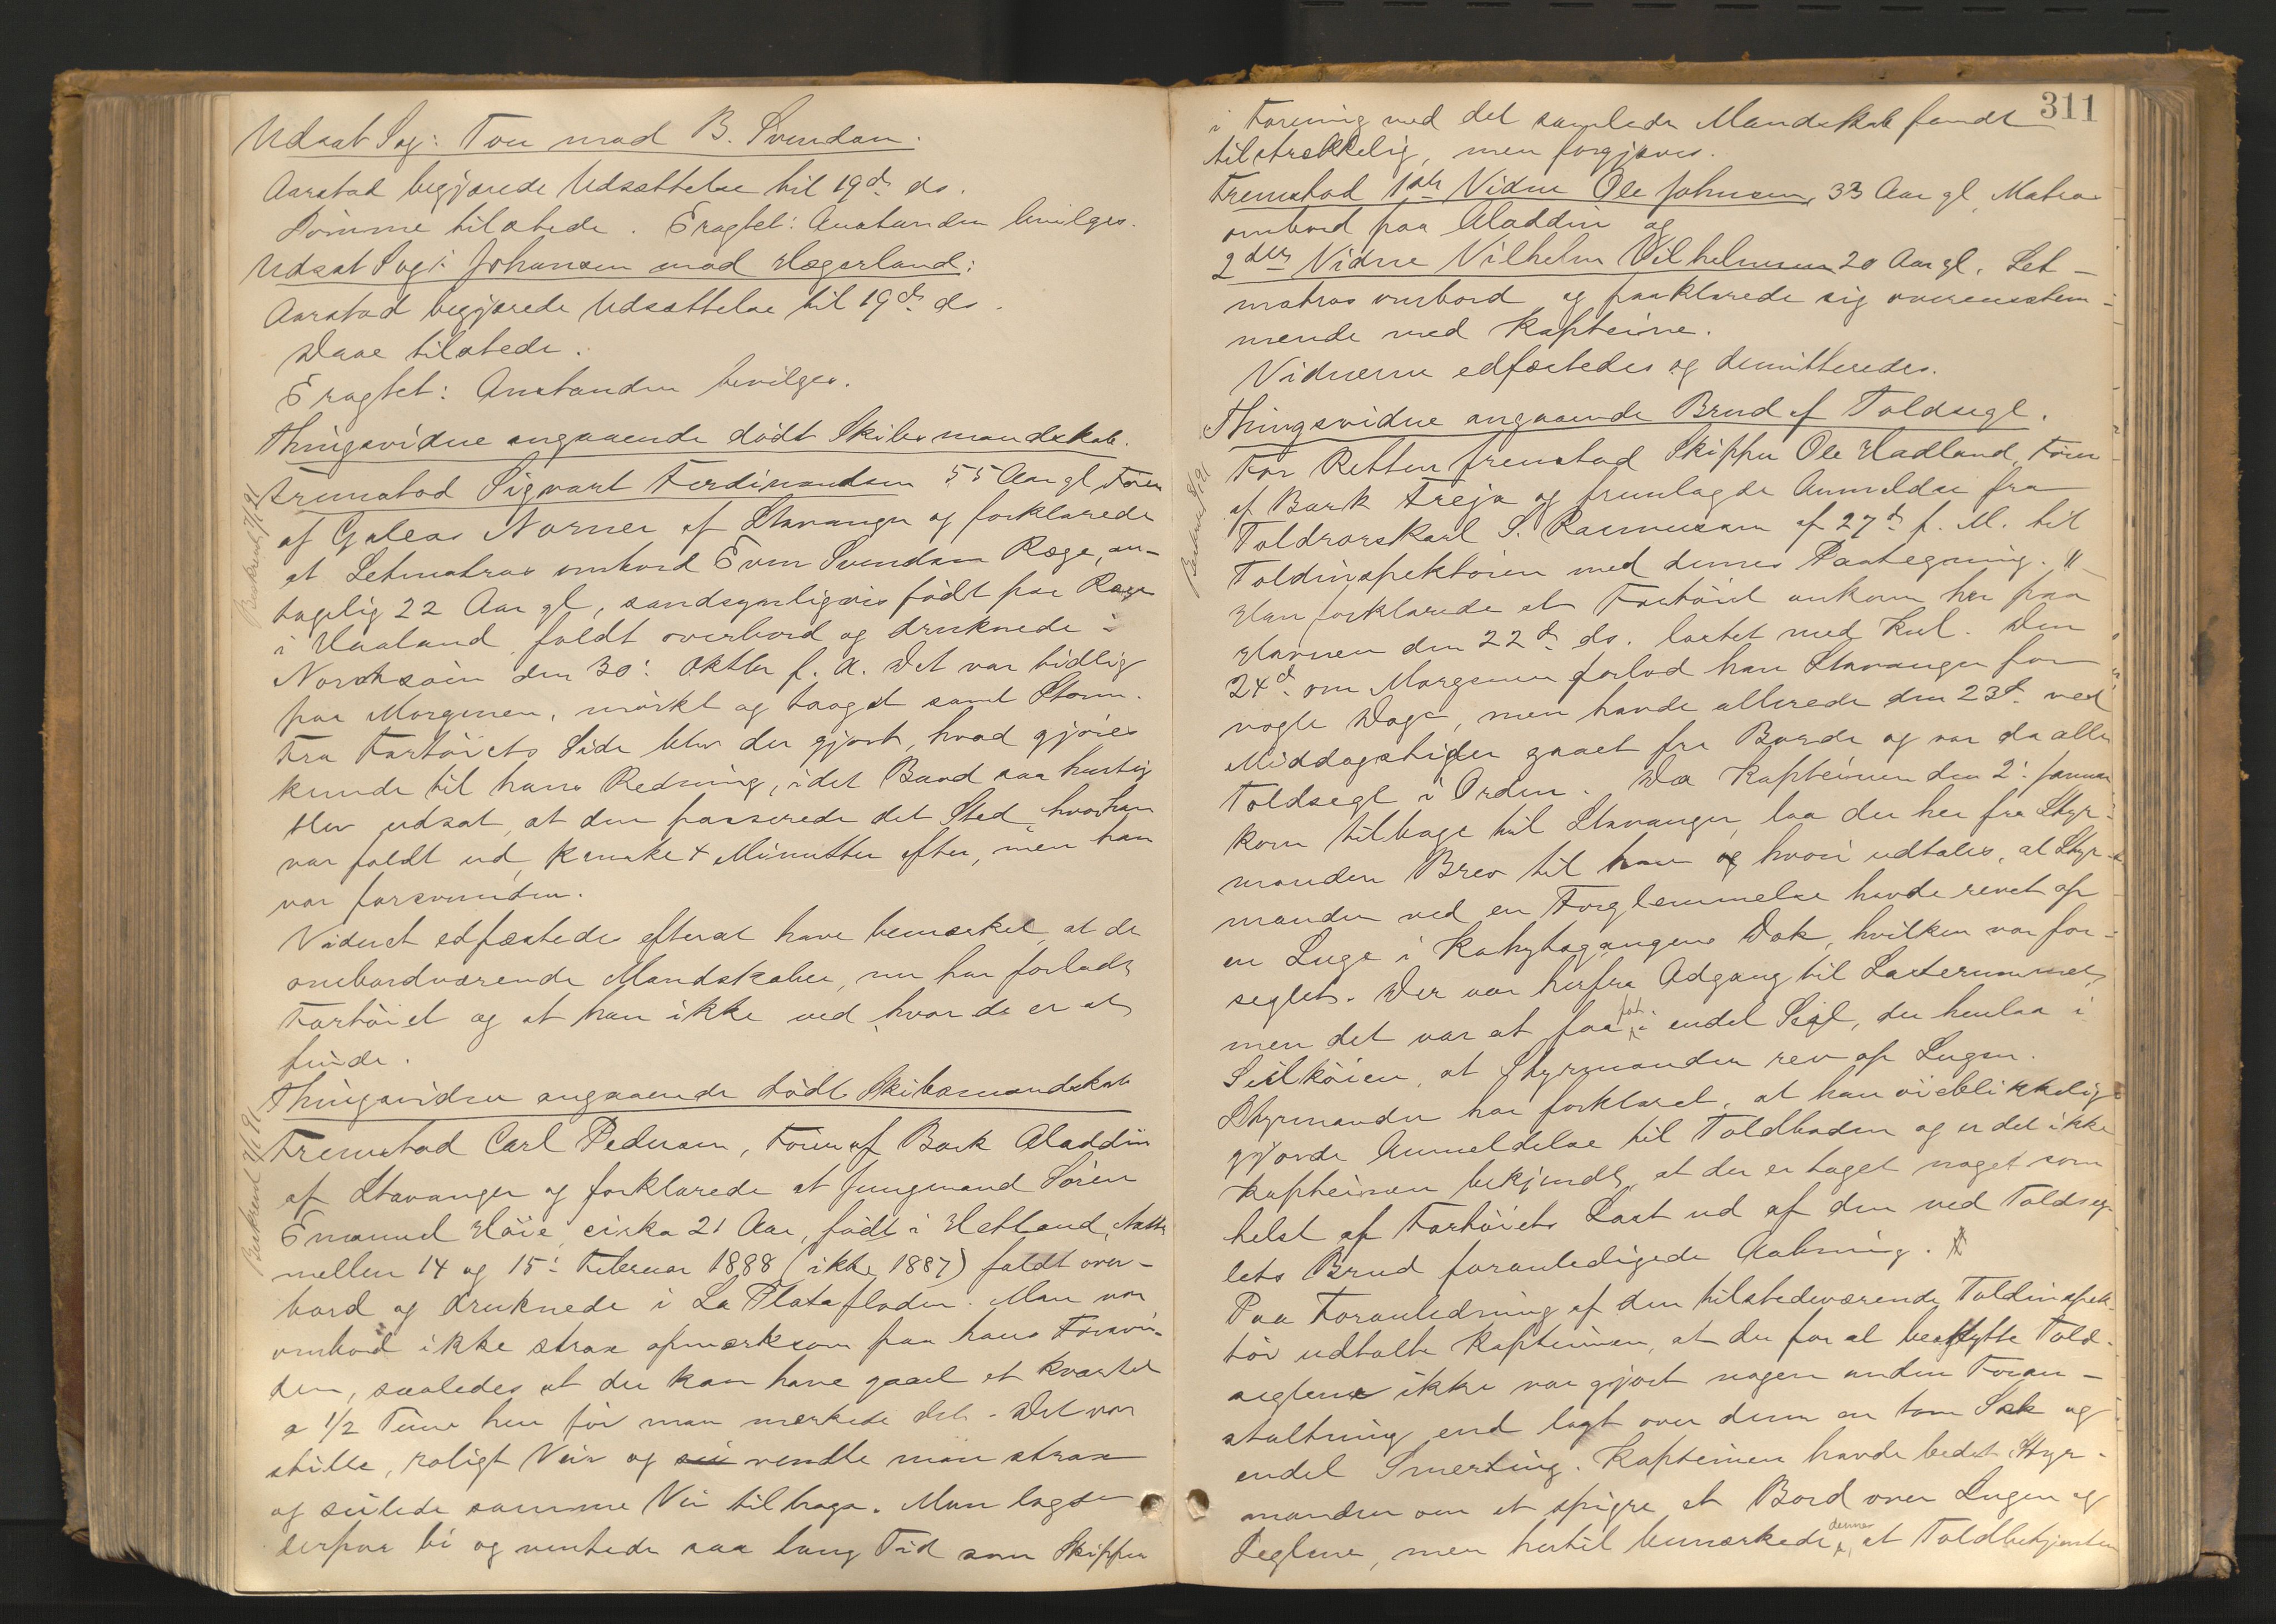 Udsat Sag: Tou mod B. Svendsen.
Aarstad begjærede Udsættelse til 19de ds.
Dömme tilstede. Eragtet: Anstanden bevilges.
Udsat Sag: Johansen mod Hægerland:
Aarstad begjærede Udsættelse til 19de ds.
Daae tilstede.
Eragtet: Anstanden bevilges.
Thingsvidne angaaende dödt Skibsmandskab.
Fremstod Sigvart Ferdinandsen 55 Aar gl, Förer
af Galeas Norner af Stavanger og forklarede
at Letmatros ombord Even Svendsen Rege, an-
tagelig 22 Aar gl, sandsynligvis födt paa Rege
i Haaland, faldt overbord og druknede i
Nordsöen den 30: Oktbr f. A. Det var tidlig
paa Morgenen, mörkt og taaget samt Storm.
Fra Fartöiets Side blev der gjort, hvad gjöres
kunde til hans Redning, idet Baad saa hurtig
blev udsat, at den passerede det Sted, hvor han
var faldt ud, kanske 4 Minutter efter, men han
var forsvunden.
Vidnet edfæstedes efterat have bemærket, at de
ombordværende Mandskaber, nu har forladt
Fartöiet og at han ikke ved, hvor de er at
finde.
Thingsvidne angaaende dödt Skibsmandskab
Fremstod Carl Pedersen, Förer af Bark Aladdin
af Stavanger og forklarede at Jungmand Sören
Emanuel Höie, cirka 21 Aar, födt i Hetland, Natten
mellem 14 og 15: Februar 1888 (ikke 1887) faldt over-
bord og druknede i La Platafloden. Man var
ombord ikke strax opmærksom paa hans Forsvin-
den, saaledes at der kan have gaaet et Kvarter
a 1/2 Time hen för man mærkede det. Det var
stille, roligt Veir og vendte man strax
og seilede samme Vei tilbage. Man lagde
derpaa bi og ventede saa lang Tid som Skipper
311
i Forening med det samlede Mandskab fandt
tilstrækkelig, men forgjæves.
Fremstod 1ste Vidne Ole Johnsen, 33 Aar gl, Matros
ombord paa Aladdin og
2det Vidne Vilhelm Vilhelmsen 20 Aar gl. Let-
matros ombord og forklarede sig overensstem-
mende med Kapteine.
Vidnerne edfæstedes og demitteredes.
Thingsvidne angaaende Brud af Toldsegl.
For Retten fremstod Skipper Ole Hadland, Förer
af Bark Freja og fremlagde Anmeldse fra
Toldrorskarl S. Rasmussen af 27de f. M. til
Toldinspektören med dennes Paategning.
Han forklarede at Fartöiet ankom her paa
Havnen den 22de ds. lastet med Kul. Den
24d. om Morgenen forlod han Stavanger for
nogle Dage, men havde allerede den 23d. ved
Middagstider gaaet fra Borde og var da alle
Toldsegl i Orden. Da Kapteinen den 2: Januar
kom tilbage til Stavanger, laa der her fra Styr-
manden Brev til ham hvori udtales, at Styr-
manden ved en Forglemmelse havde revet op
en Luge i Kahytsgangens Dæk, hvilken var for-
seglet. Der var herfra Adgang til Lasterummet,
men det var at faa fat i endel Seil, der henlaa i
Seilköien, at Styrmanden rev op Lugen.
Styrmanden har forklaret, at han öieblikkelig
gjorde Anmeldelse til Toldboden og er det ikke
Kapteinen bekjendt, at der er taget noget som
helst af Fartöiets Last ud af den ved Toldseg-
lets Brud foranledigede Aabning.
Paa Foranledning af den tilstedeværende Toldinspek-
tör udtalte Kapteinen, at der for at beskytte Told-
seglene ikke var gjort nogen anden Foran-
staltning end lagt over dem en tom Sæk og
endel Smerting. Kapteinen havde bedet Styr-
manden om at spigre et Bord over Lugen og
Seglene, men hertil bemærkede denne, at Toldbetjenten